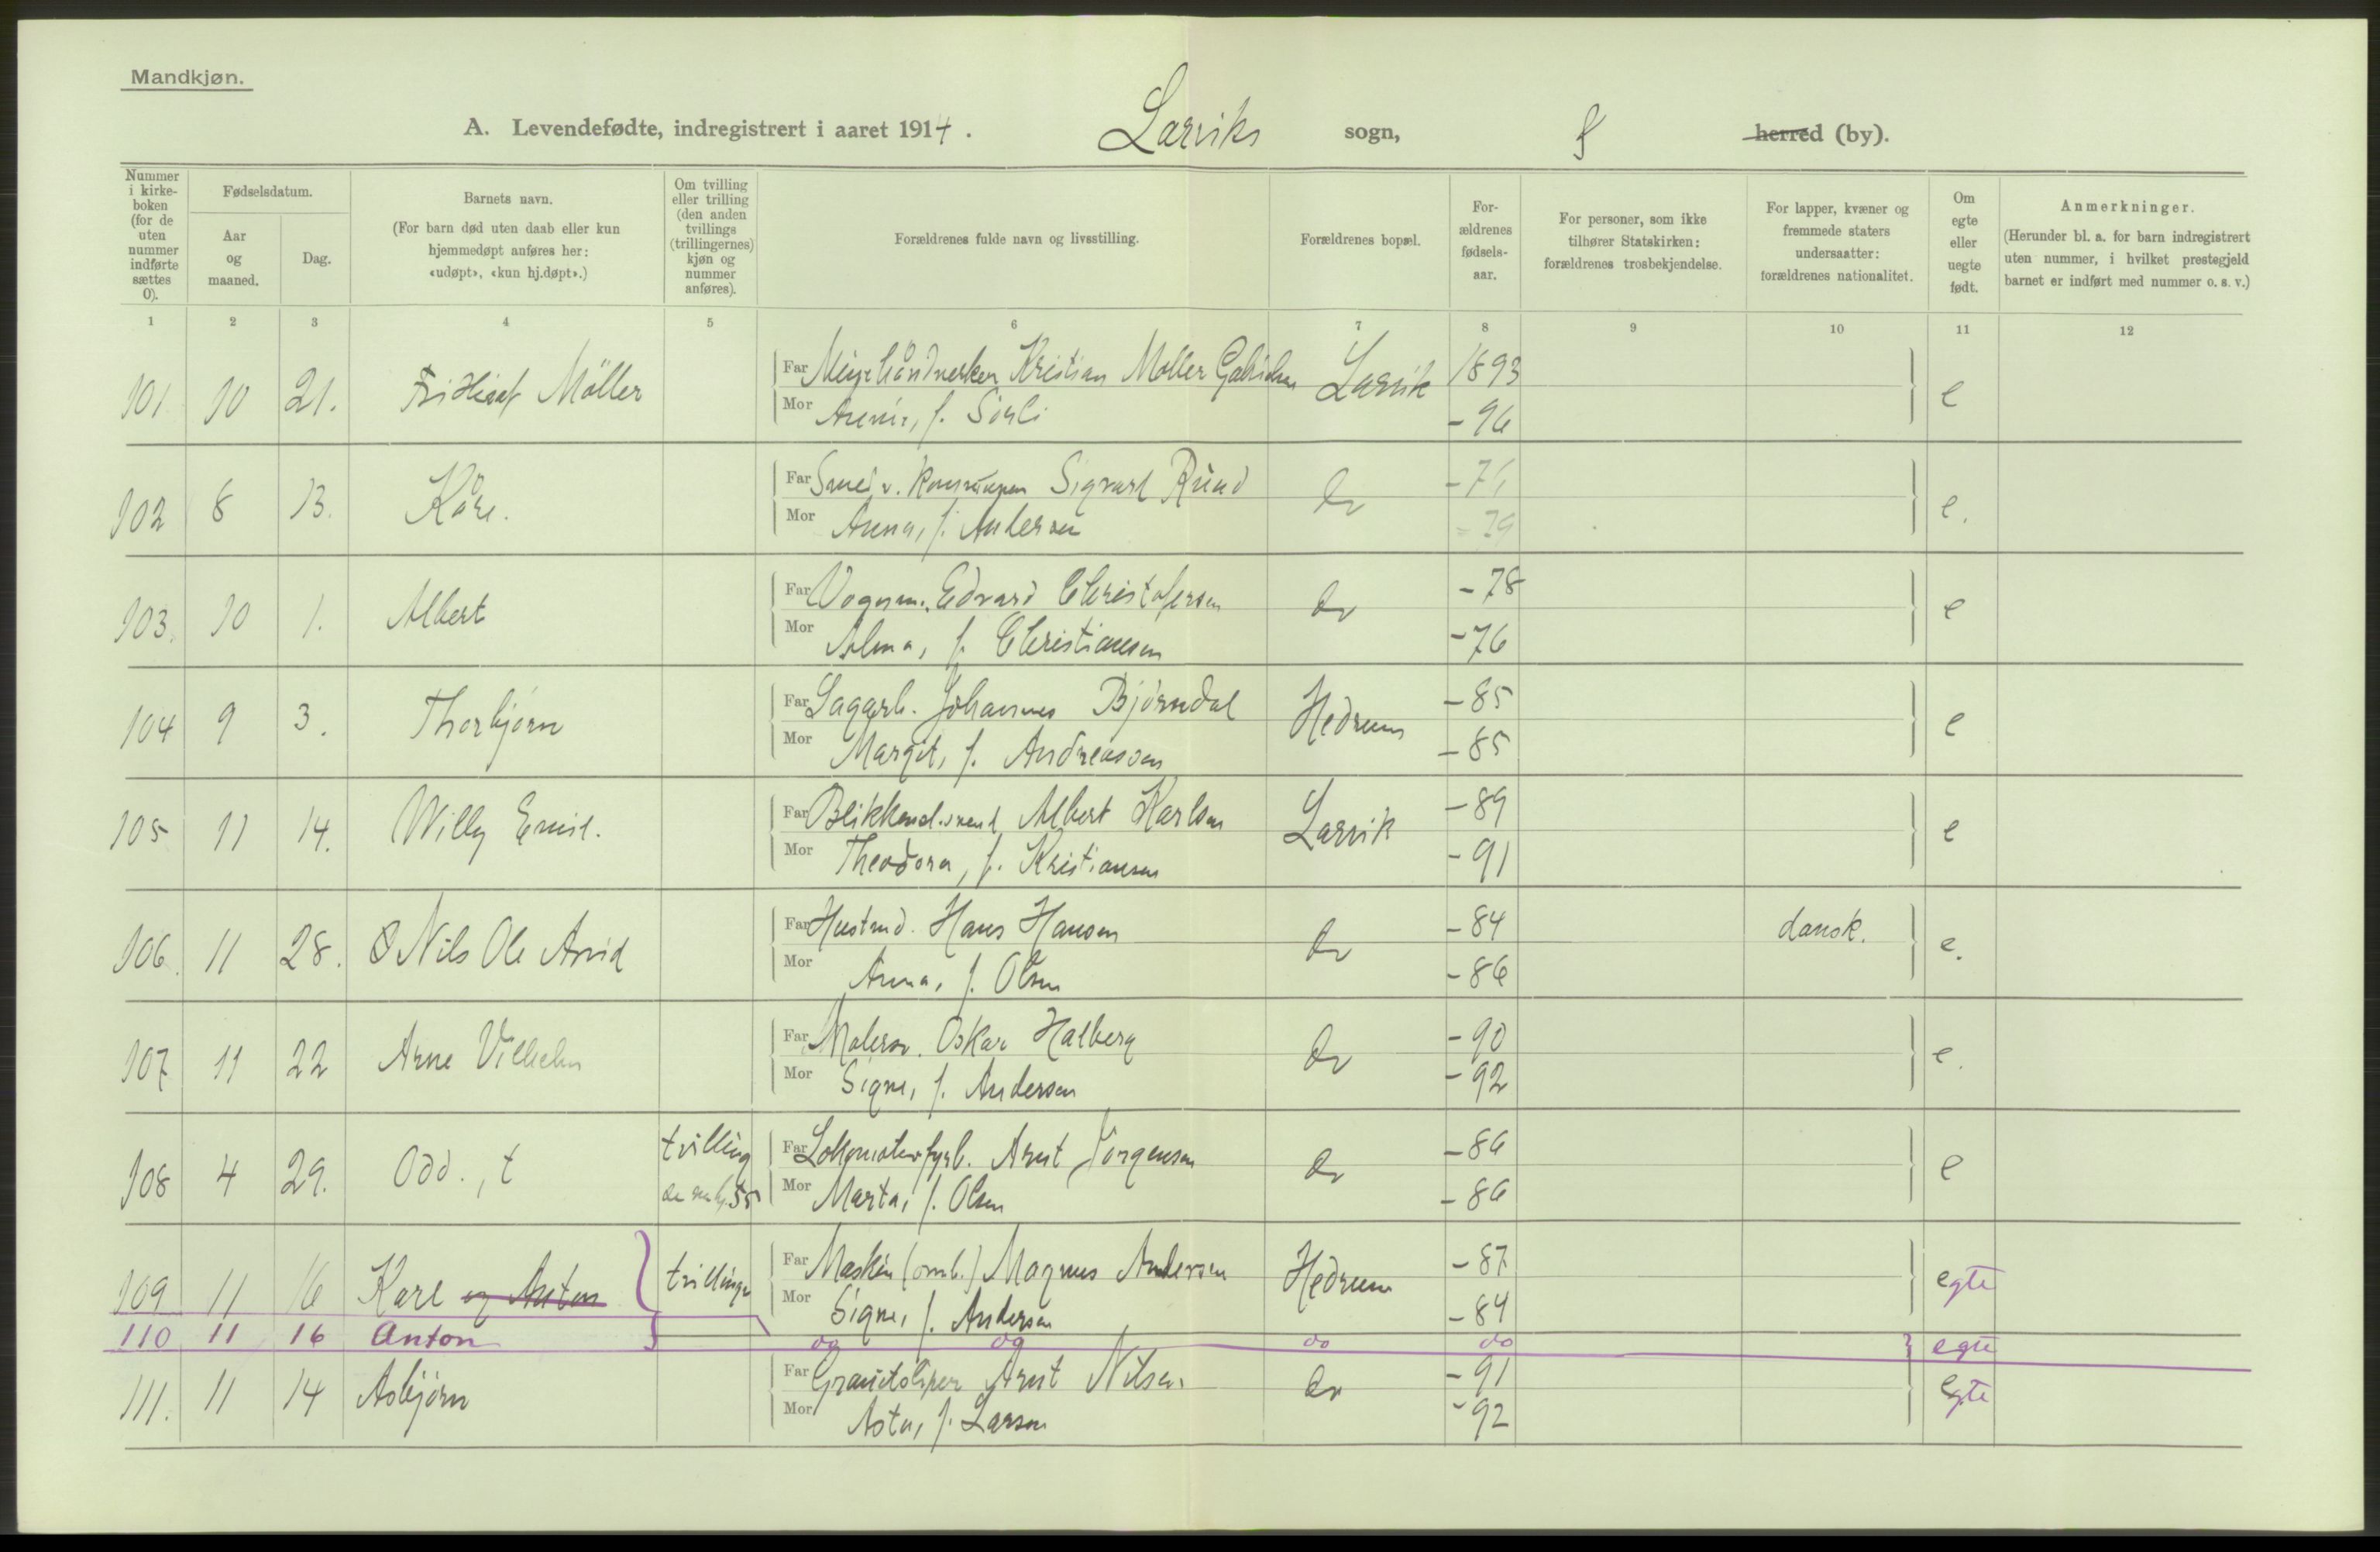 Mandkjøn.
A. Levendefødte, indregistrert i aaret 1914. Larviks sogn, herred (by).
Nummer i kirkeboken (for de uten nummer indførte sættes 0).
Fødselsdatum.
Aar og maaned.
Dag.
Barnets navn.
(For barn død uten daab eller kun hjemmedøpt anføres her: «udøpt», «kun hj.døpt».)
Om tvilling eller trilling (den anden tvillings (trillingernes) kjøn og nummer anføres).
Forældrenes fulde navn og livsstilling.
Forældrenes bopæl.
Forældrenes fødselsaar.
For personer, som ikke tilhører Statskirken: forældrenes trosbekjendelse.
For lapper, kvæner og fremmede staters undersaatter: forældrenes nationalitet.
Om egte eller uegte født.
Anmerkninger.
(Herunder bl. a. for barn indregistrert uten nummer, i hvilket prestegjeld barnet er indført med nummer o. s. v.)
1 2 3 4 5 6 7 8 9 10 11 12
101 10 21. Fridtjof Möller Far Kristian Møller Larvik 1893 e
Mor f. Sørli - 96
102 8 13. Kåre. Far Sigvard Ruud Do - 76 e.
Mor Anna, f. Andersen - 79
103. 10 1. Albert Far Vognm. Edvard Christofersen Do - 78 e
Mor Alma, f. Christiansen - 76
104 9 3. Thorbjørn Far Sagarb. Johannes Bjørndal Hedrum - 85 e
Mor Margit, f. Andreassen - 85
105 11 14. Willy Emil. Far Blikkensl.svend Albert Karlsen Larvik - 89 e
Mor Theodora, f. Kristiansen - 91
106. 11 28. Nils Ole Arvid Far Hans Hansen Do - 84 dansk. e.
Mor Anna, f. Olsen - 86
107 11 22 Arne Vilhelm Far Malersv. Oskar Halberg Do - 90 e.
Mor Signe, f. Andersen - 92
108 4 29. Odd., t tvilling 55 Far Lokomotivfyrb. Arnt Jörgensen Do - 86 e
Mor Marta, f. Olsen - 86
109 11 16 Karl og Anton tvillinger Far Maskin (omb.) Magnus Andersen Hedrum - 87 egte
Mor Signe, f. Andersen - 84
110 11 16 Anton do do egte
111. 11 14 Asbjørn Far Granitsliper Arnt Nilsen Do - 91 egte
Mor Asta, f. Larsen - 92